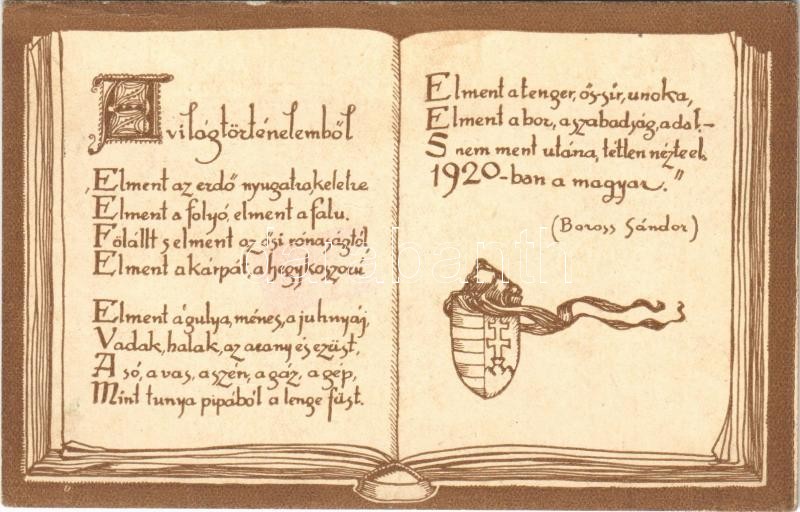 A világtörténelemből
„Elment az erdő nyugatra, keletre
Elment a folyó, elment a falu.
Fölállt s elment az ősi rónaságtól,
Elment a kárpát, a hegykoszorú
Elment a gulya, ménes, a juhnyáj,
Vadak, halak, az arany és ezüst,
A só, a vas, a szén, a gáz, a gép,
Mint tunya pipából a lenge füst.
Elment a tenger, ős-sír, unoka,
Elment a bor, a szabadság, a dal,—
S nem ment utána, tétlen nézte el,
1920-ban a magyar."
(Boross Sándor)
darabanth